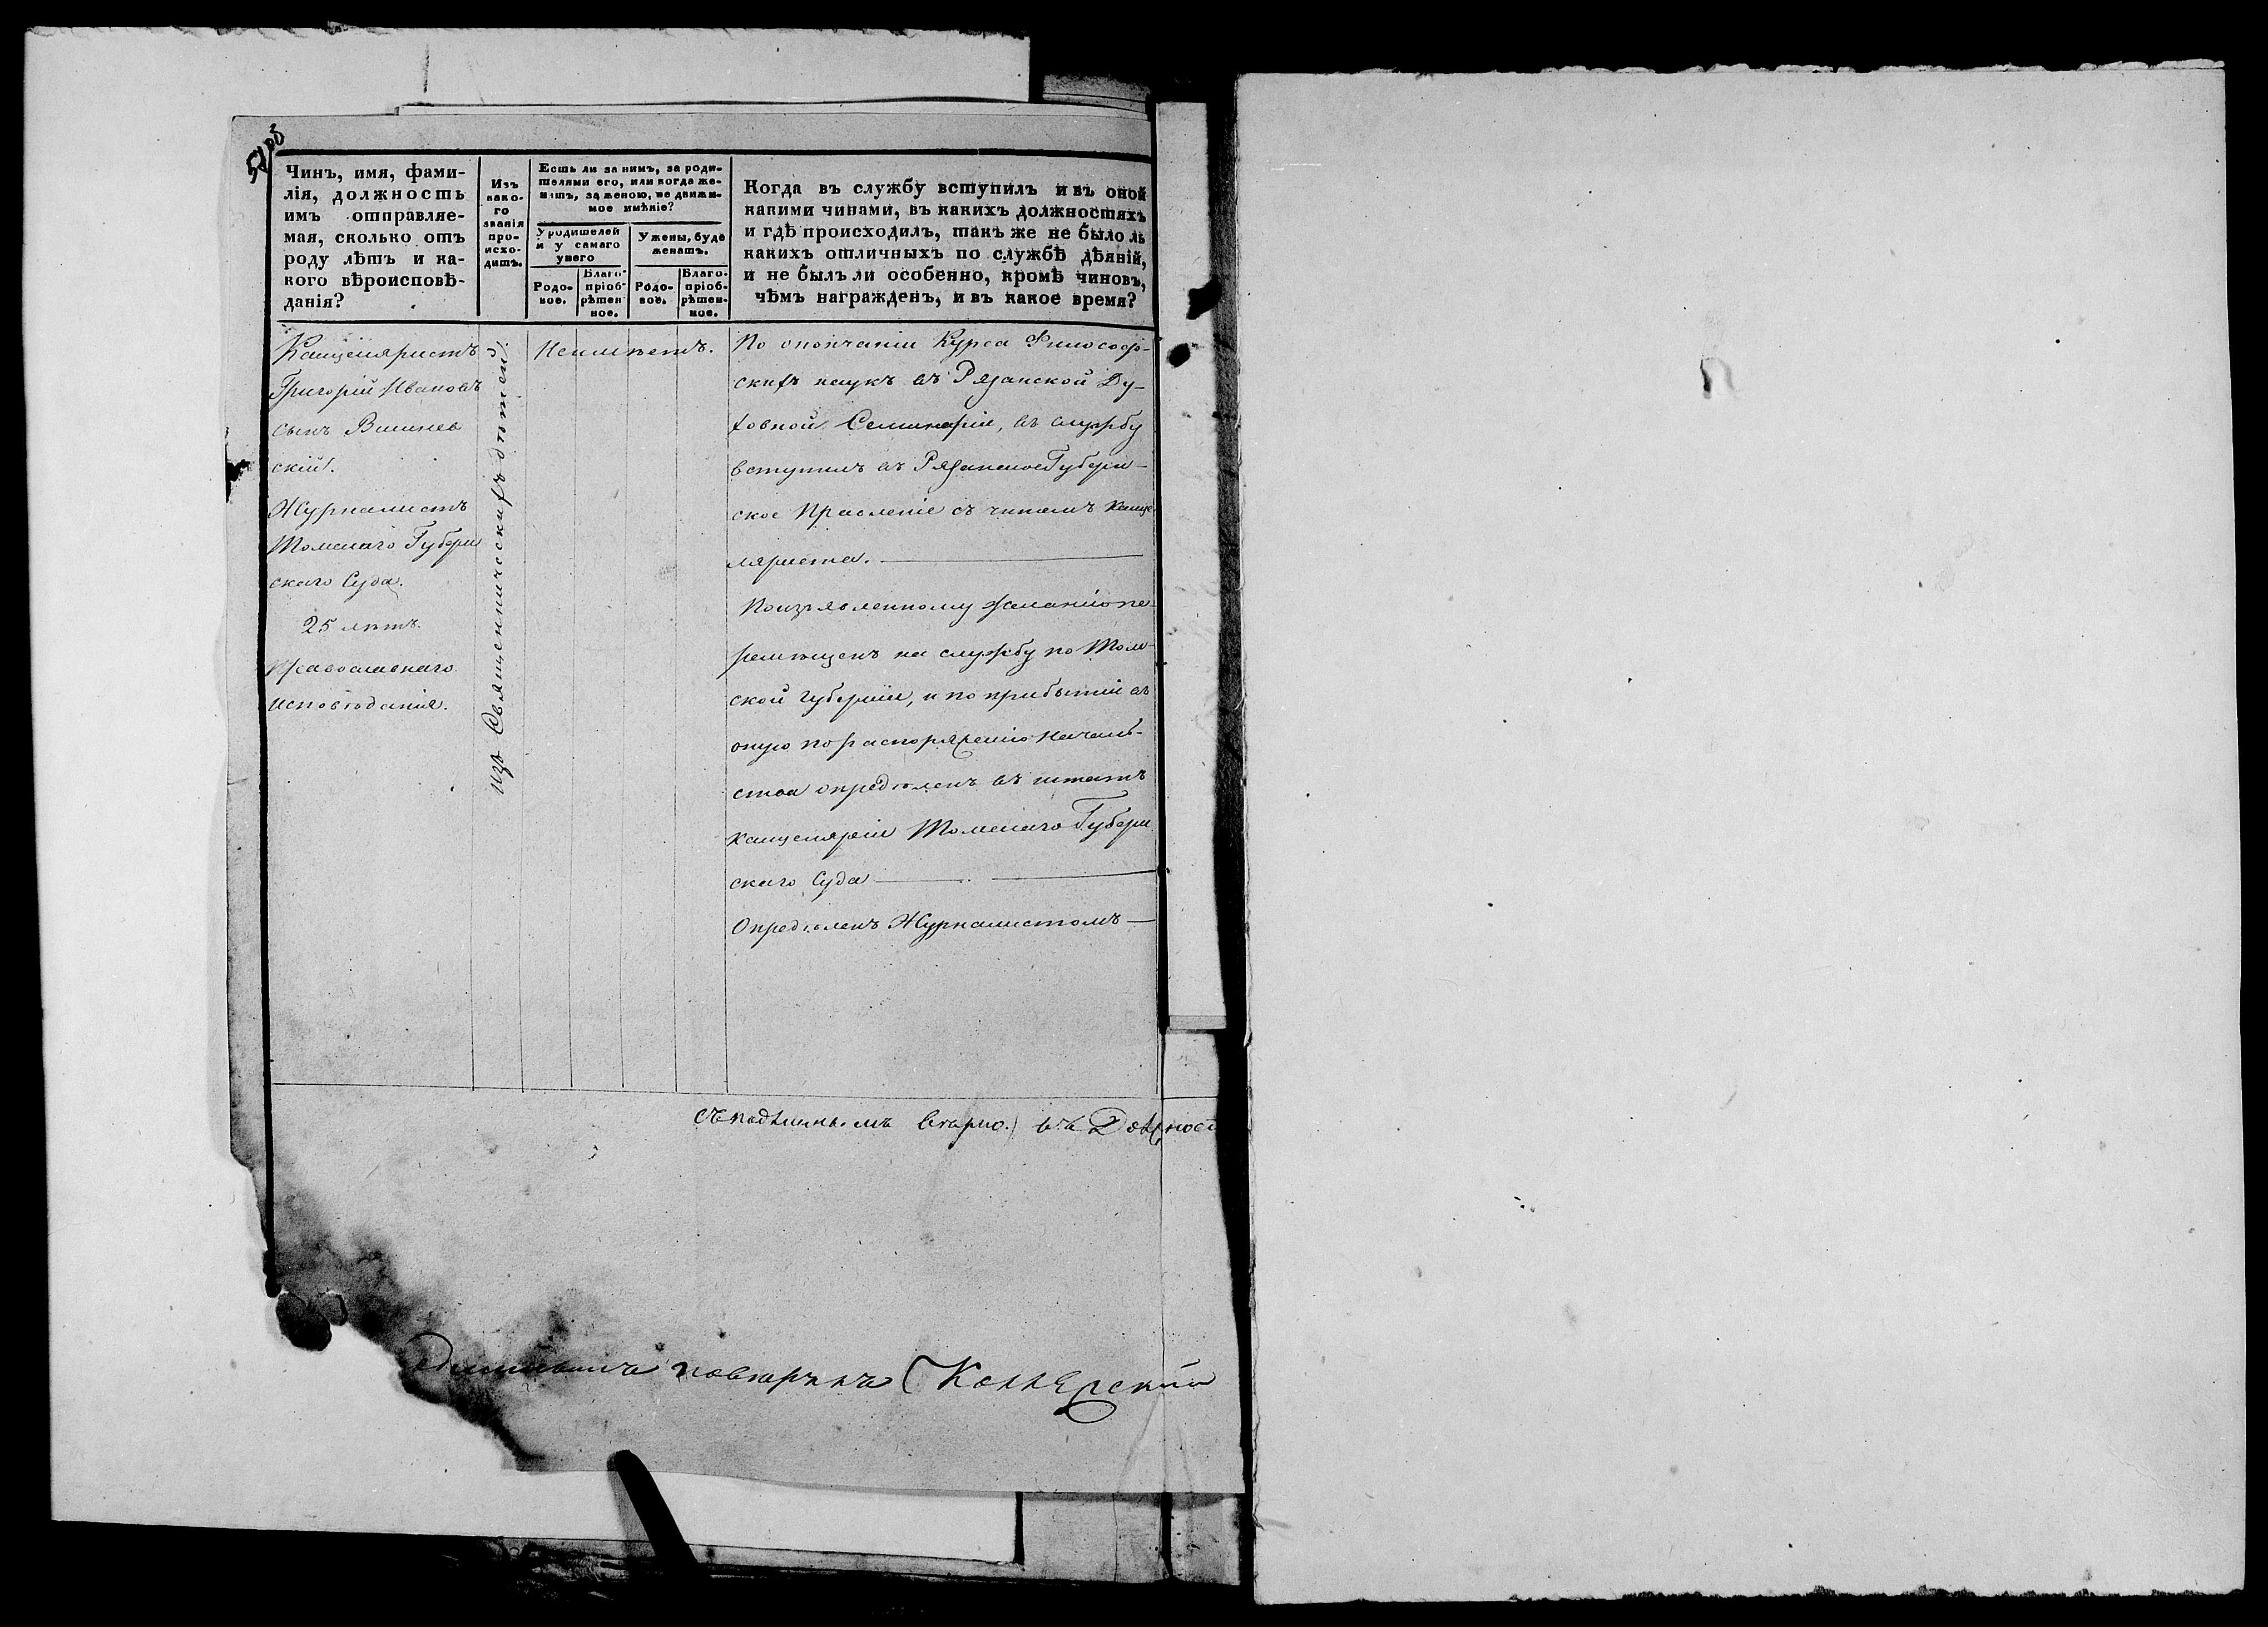 Чинъ, имя, фами-
лія, должность
имъ отправляе-
мая, сколько отъ
роду лѣтъ и ка-
кого вѣроисповѣ-
данія?
Изъ
како-
го
званія
про-
исхо-
дитъ.
Есть ли за нимъ, за роди-
телями его, или когда же-
натъ, за женою, не движи-
мое имѣніе?
У родителей
и у самаго
унего
У жены, буде
женатъ.
Родо-
вое.
Благо-
пріоб-
рѣтен
ное.
Родо-
вое.
Благо-
пріоб-
рѣтен-
ное.
Когда въ службу вступилъ и въ оной
какими чинами, въ какихъ должностяхъ
и гдѣ происходилъ, такъ же не было ль
какихъ отличныхъ по службѣ дѣяній,
и не былъ ли особенно, кромѣ чиновъ,
чѣмъ награжденъ, и въ какое время?
Канцеляристъ
Григорій Ивановъ
сынъ Вишнев
скій.
Журналистъ
Томскаго Губерн
скаго Суда.
25 лѣтъ.
Православнаго
исповѣданія.
изъ Священническихъ дѣтей.
Неимѣетъ.
По окончаніи Курса Философ-
скихъ наукъ въ Рязанской Ду-
ховной Семинаріи, въ службу
вступилъ въ Рязанское Губерн-
ское Правленіе съ чиномъ Канце
ляриста.
Поизъявленному желанію пе-
ремѣщенъ на службу по Том-
ской губерніи, и по прибытіи въ
оную по распоряженію Началь-
ства опредѣленъ въ штатъ
Канцеляріи Томскаго Губерн
скаго Суда
Опредѣленъ Журналистомъ